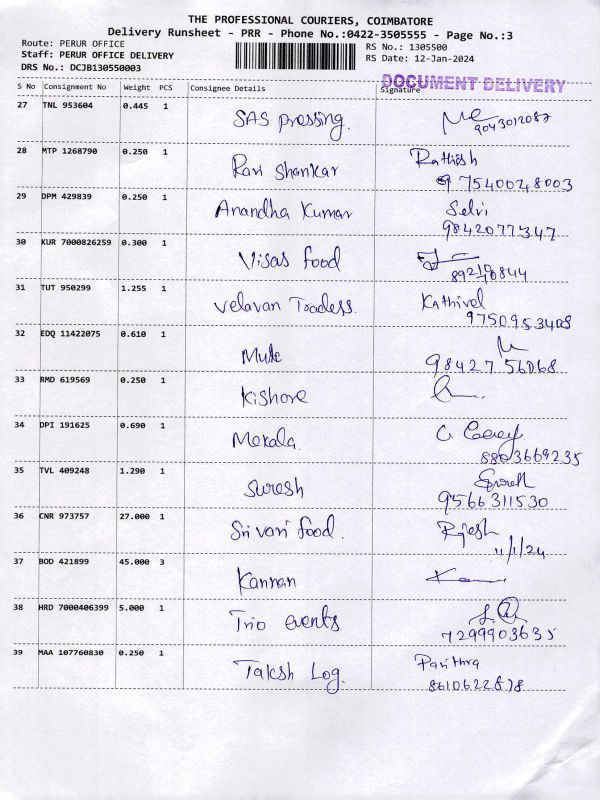 THE PROFESSIONAL COURIERS, COIMBATORE
Delivery Runsheet - PRR - Phone No.:0422-3505555 - Page No.:3
Route: PERUR OFFICE
RS No.: 1305500
Staff: PERUR OFFICE DELIVERY
RS Date: 12-Jan-2024
DRS No.: DCJB130550003
DOCUMENT DELIVERY
S No Consignment No Weight PCS Consignee Details Signature
27 TNL 953604 0.445 1 SAS pressing.
9043012087
28 MTP 1268790 0.250 1 Ravi Shankar Rathish
7540048003
29 DPM 429839 0.250 1 Anandha Kumar Selvi
9842077347
30 KUR 7000826259 0.300 1 Visas food
31 TUT 950299 1.255 1 Velavan Tradess. Kathivel
9750953408
32 EDQ 11422075 0.610 1
98427 56068
33 RMD 619569 0.250 1 Kishore
34 DPI 191625 0.690 1 Mekala.
8803669235
35 TVL 409248 1.290 1 Suresh
9566311530
36 CNR 973757 27.000 1 Sri vari food. Rajesh
11/1/24
37 BOD 421899 45.000 3 Kannan
38 HRD 7000406399 5.000 1 Trio events
7299903635
39 MAA 107760830 0.250 1 Taksh Log. Pavithra
8610622878